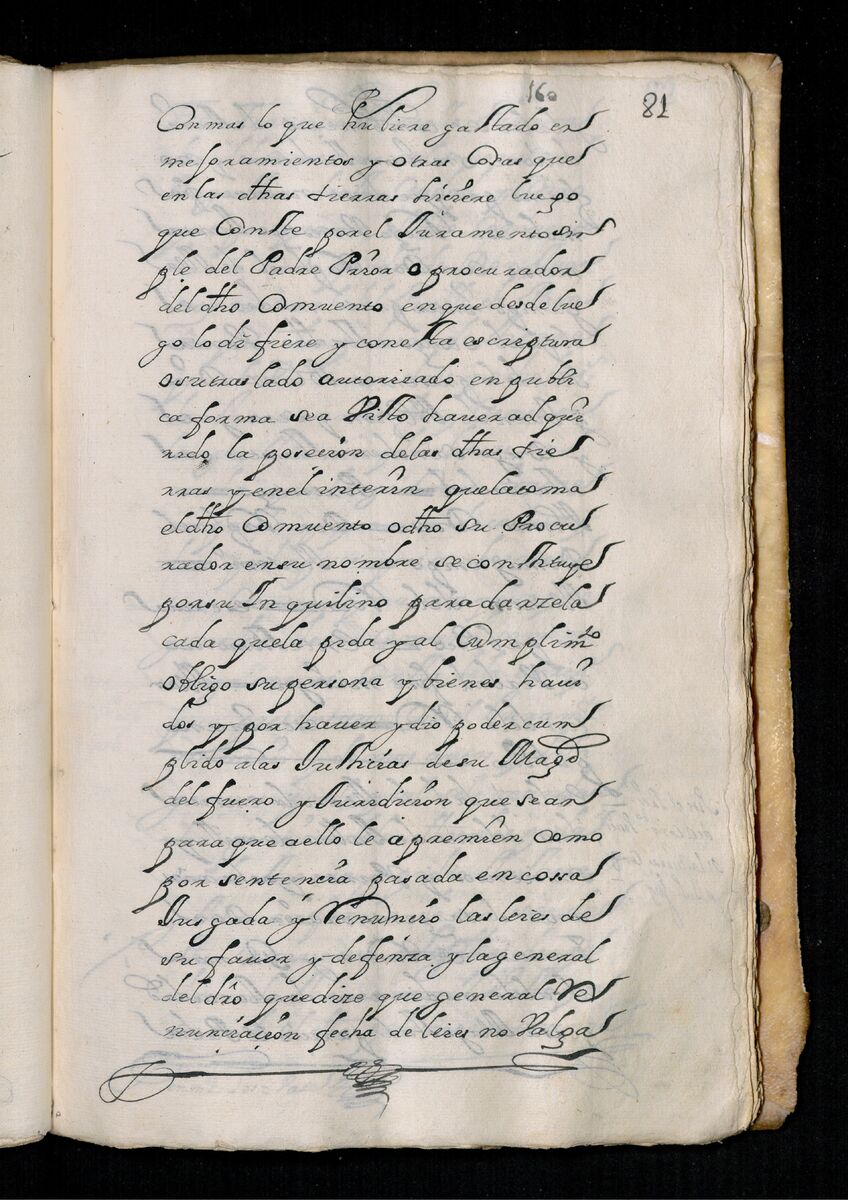 160
81
Con mas lo que hubiere gastado en
mejoramientos y otras Cosas que
en las dhas tierras hiciere luego
que Conste por el Juramento sin
ple del Padre Prior o procurador
del dho Comvento en que desde lue
go lo difiere y con esta escriptura
o su traslado autorizado en publi
ca forma sea Visto haver adqui
rido la posecion de las dhas tie
rras y en el interin que la toma
el dho Comvento o dho su Procu
rador en su nombre se constituye
por su Inquilino para darzela
cada que la pida y al Cumplimto
obligo su persona y bienes havi
dos y por haver y dio poder cum
plido a las Justicias de su Magd
del fuero y Juridicion que sean
para que a ello le apremien como
por sentencia pasada en cossa
Jusgada y Renuncio las leies de
su favor y defenza y la general
del dro que dize que general Re
nunciacion fecha de leies no Valga